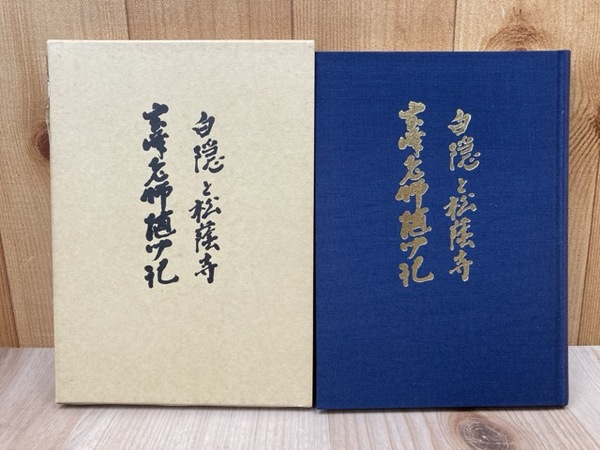 白隠と松蔭寺
玄峰老師随聞記
白隠と松蔭寺
玄峰老師随聞記